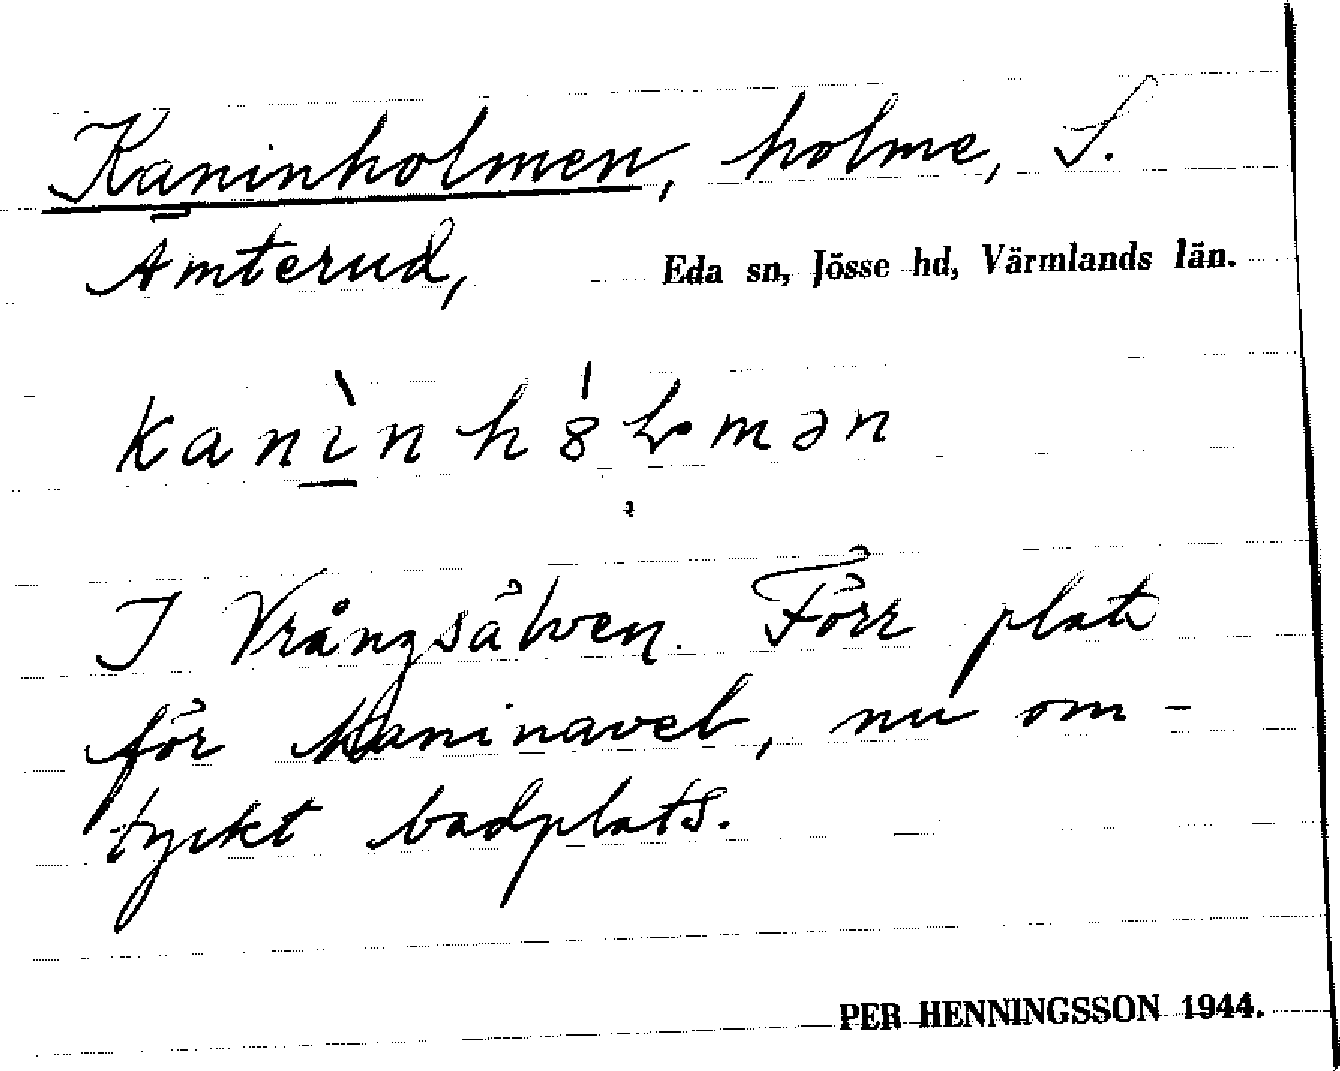 Kaninholmen, holme, S.
Åmterud, Eda sn, Jösse hd, Värmlands län.
I Vrångsälven. Förr plats
för kaninavel, nu om-
tyckt badplats.
PER HENNINGSSON 1944.